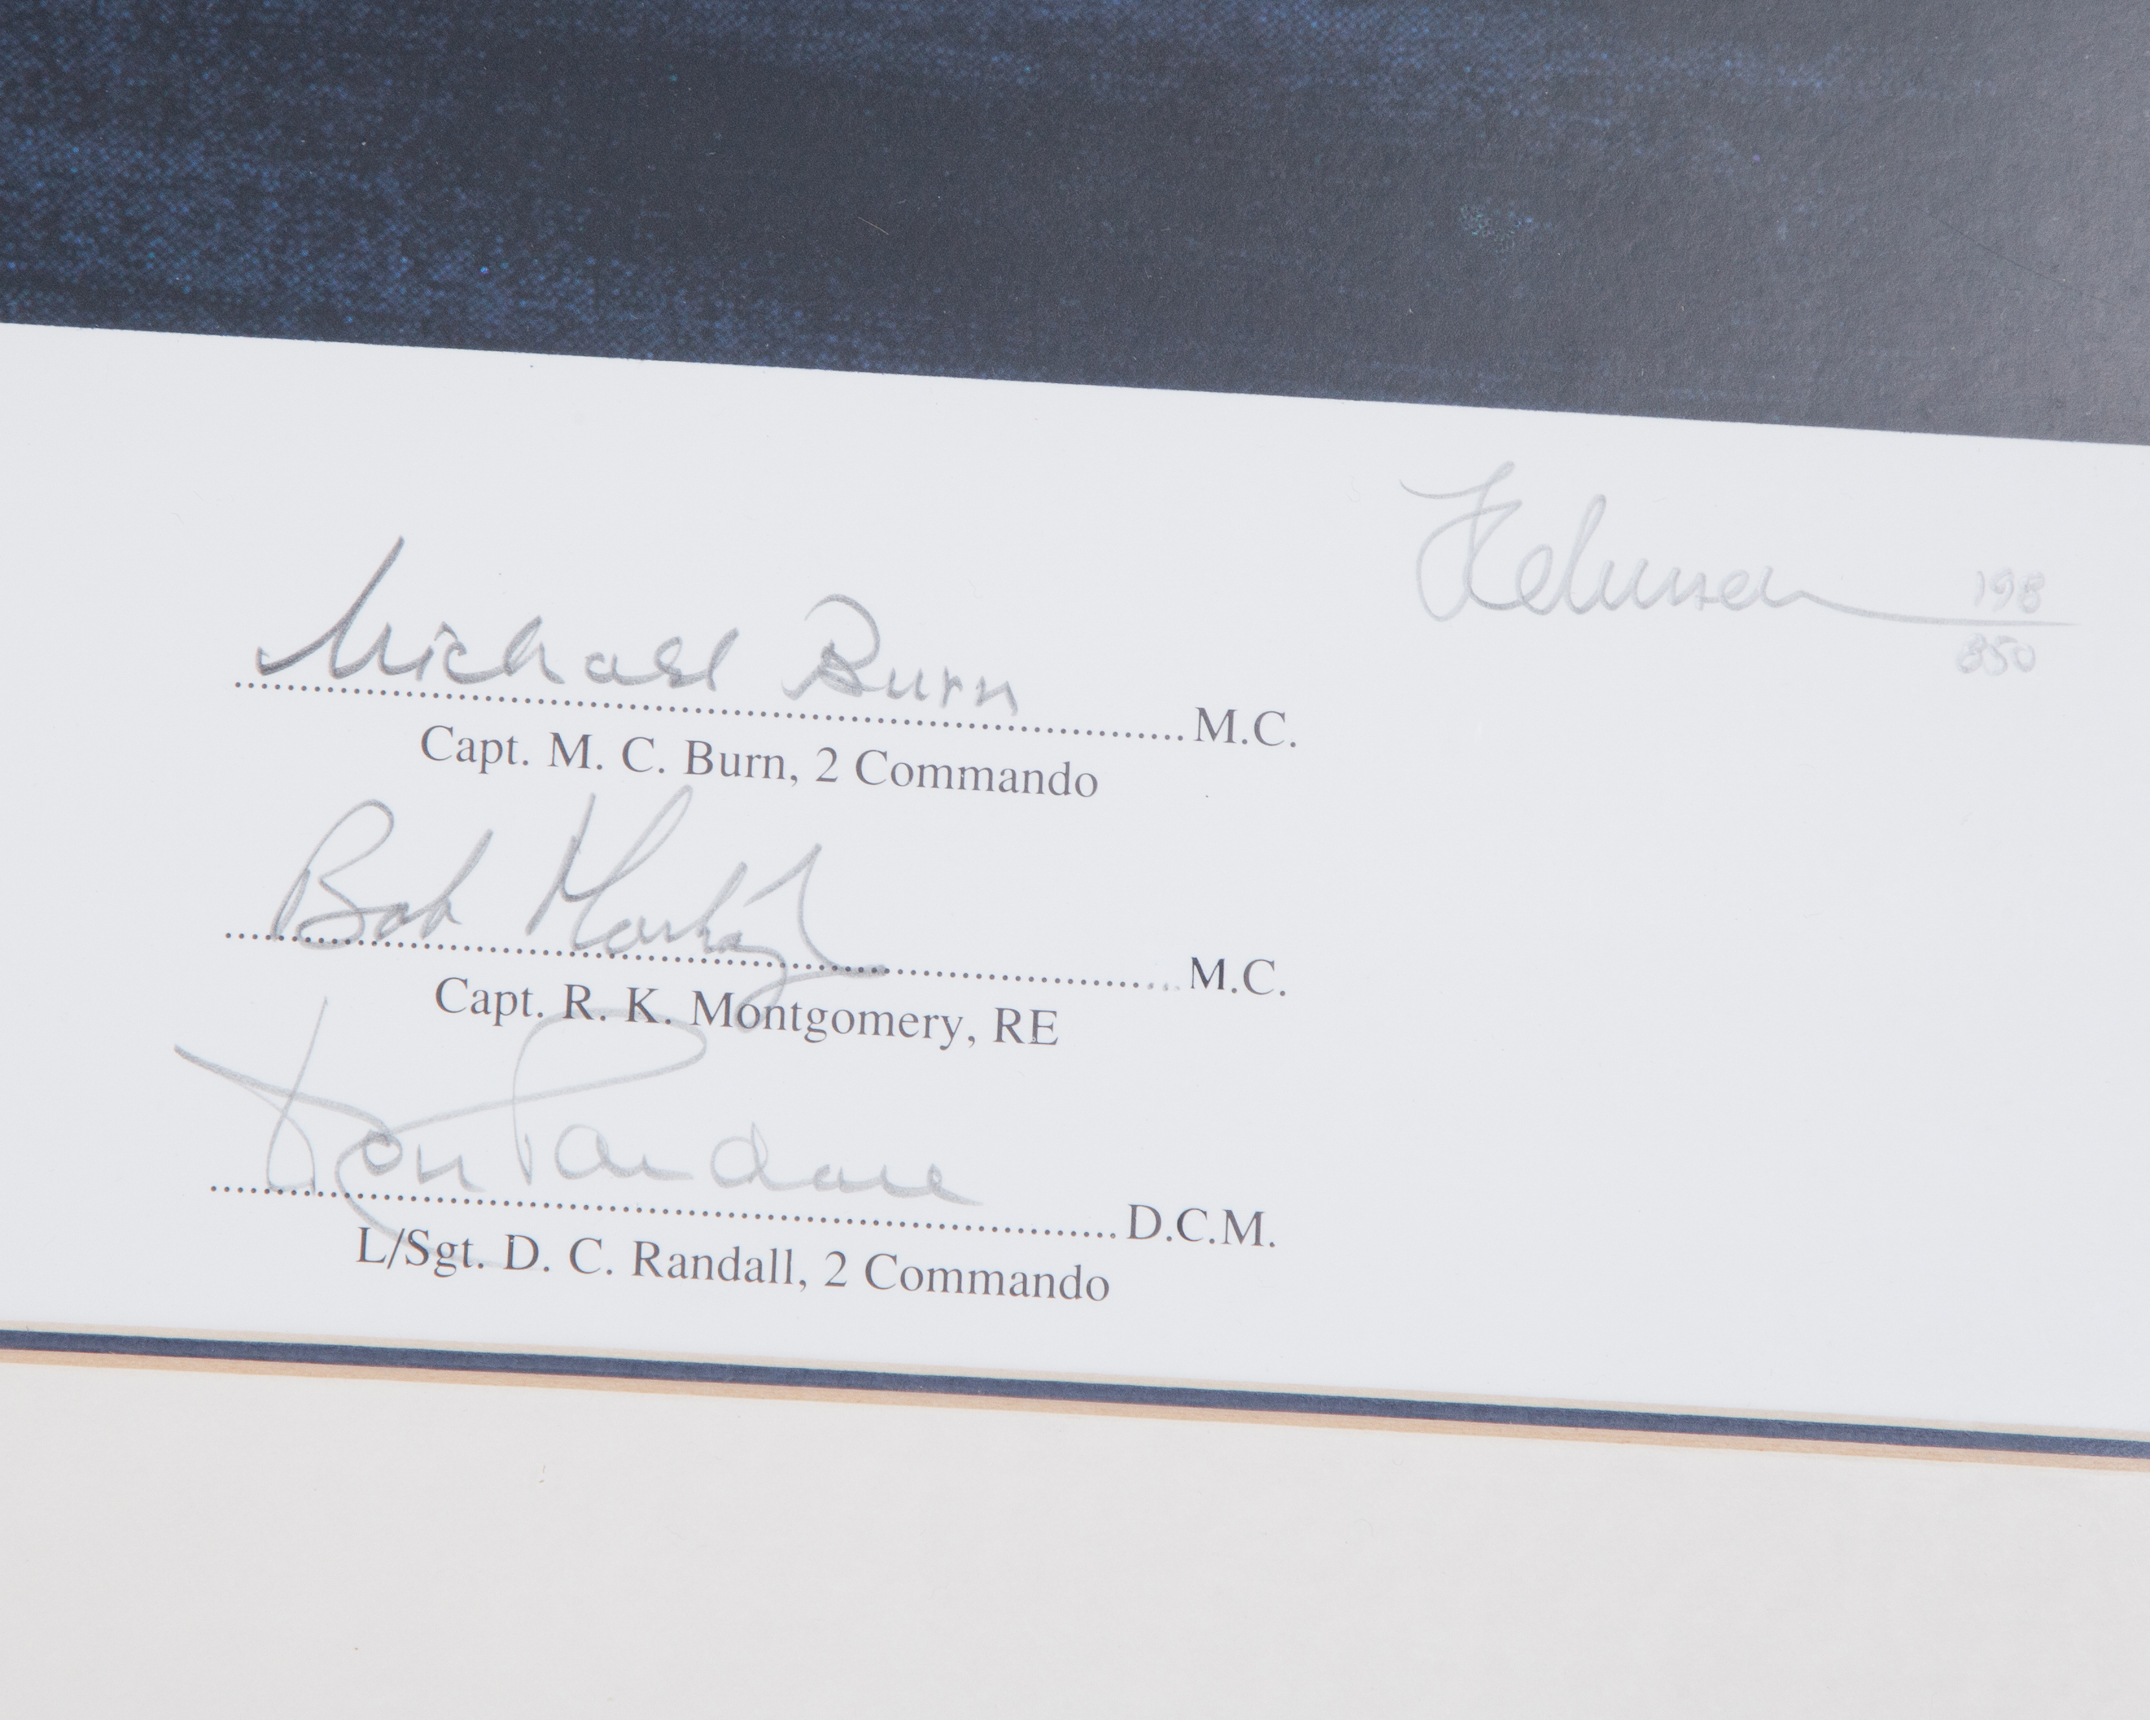 198
850
Michael Burn
M.C.
Capt. M. C. Burn, 2 Commando
Bob Montgomery
M.C.
Capt. R. K. Montgomery, RE
Don Randall
D.C.M.
L/Sgt. D. C. Randall, 2 Commando